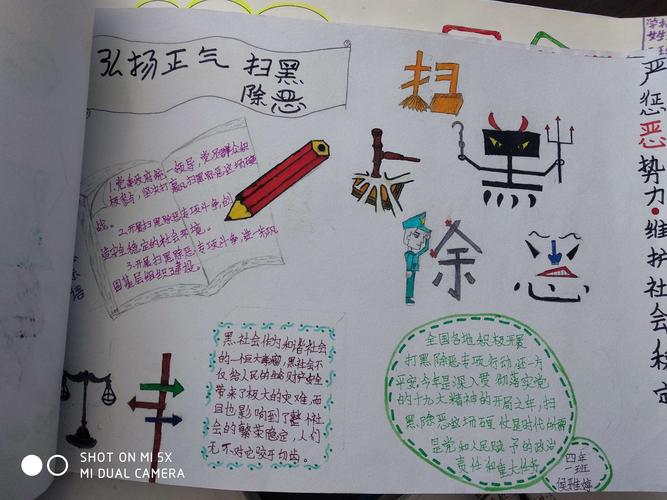 弘扬正气 扫黑
除恶
扫
黑
除
恶
严惩恶势力·维护社会稳定
1.党委政府统一领导,党
战。2.开展扫黑除恶专项斗争,创
造安全稳定的社会环境。
3.开展扫黑除恶专项斗争,进一步巩
固基层组织建设
黑社会作为和谐社会
的一枚大毒瘤,黑社会不
仅给人民的生命财产安全
带来了极大的灾难,而
且也影响到了整个社
会的繁荣稳定,人们
无不对它咬牙切齿。
全国各地积极开展
打黑除恶专项行动,还一方
平安今年是深入贯彻落实党
的十九大精神的开局之年,扫
黑除恶这场硬仗是时代的需
是党和人民赋予的政治
责任和重大任务
四年
一班
SHOT ON MI 5X
MI DUAL CAMERA